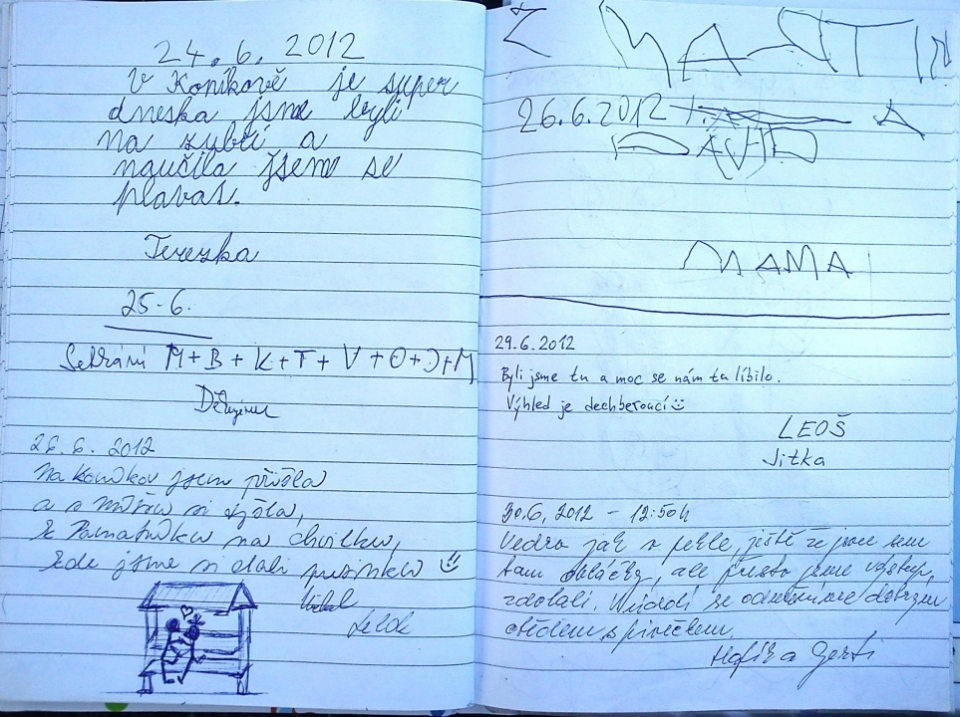 24.6.2012
V Koníkově je super
dneska jsme byli
na zubří a
naučila jsem se
plavat.
Terezka
25-6.
Setkání M+B+K+T+V+O+J+M
Děkujeme
26.6.2012
Na Koníkov jsem přišla
a s
K Památníku na chvilku,
kde jsme si dali pusinku
Z MARTIN
26.6.2012 A
DAVID
MAMA
29.6.2012
Byli jsme tu a moc se nám tu líbilo.
Výhled je dechberoucí☺
LEOŠ
Jitka
30.6.2012 - 12:50h
Vedro jak v pekle, ještě že jsou sem
tam obláčky, ale přesto jsme výstup
zdolali. se odměníme dobrým
obědem s pivečkem.
a Gerti